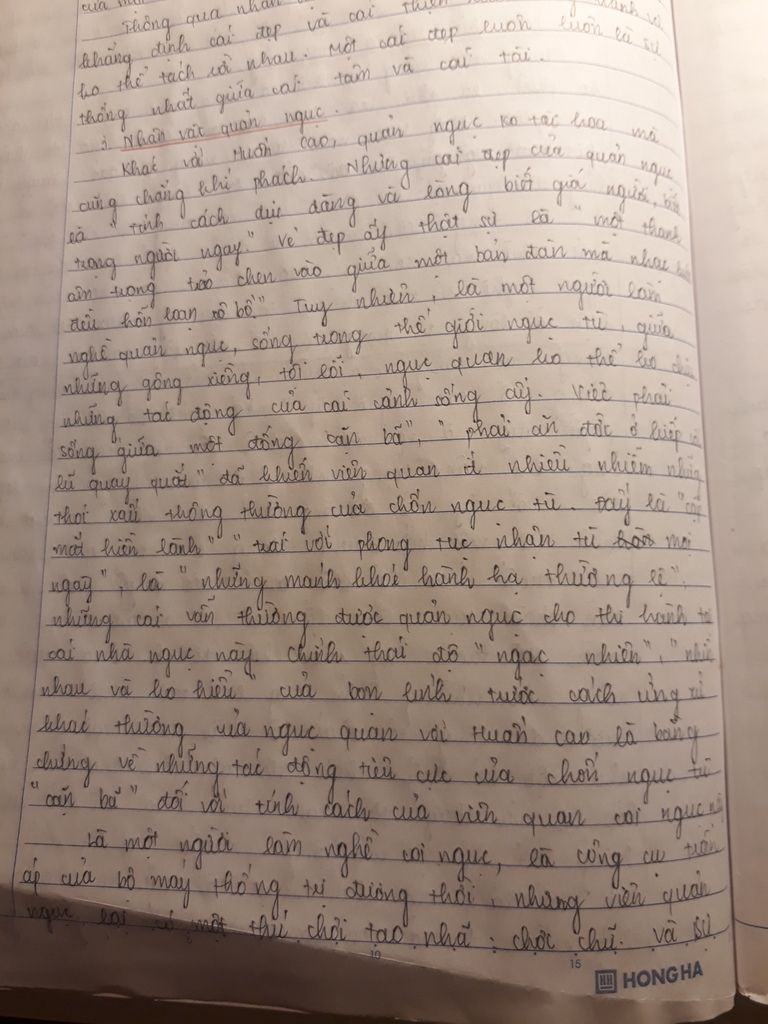 của
Thông qua nhân cái đẹp và cái thiện
khẳng định cái đẹp và cái
ko thể tách rời nhau. Một cái đẹp luôn luôn là sự
thống nhất giữa cái tâm và cái tài.
Nhân vật quản ngục.
Khác với Huấn Cao, quản ngục ko tài hoa mà
cũng chẳng khí phách. Nhưng cái đẹp của quản ngục
là "tính cách dịu dàng và lòng biết giá người, biết
trọng người ngay" vẻ đẹp ấy thật sự là "một thanh
âm trong trẻo chen vào giữa một bản đàn mà nhạc luật
đều hỗn loạn xô bồ." Tuy nhiên, là một người làm
nghề quản ngục, sống trong thế giới ngục tù, giữa
những gông xiềng, tội lỗi, ngục quan ko thể ko chịu
những tác động của cái cảnh sống ấy. Việc phải
sống giữa một đống cặn bã", "phải ăn đời ở kiếp với
lũ quay quắt" đã khiến viên quan ít nhiều nhiễm những
thói xấu thông thường của chốn ngục tù. Đấy là "cặp
mắt hiền lành" "trái với phong tục nhận tù mọi
ngày", là "những mánh khóe hành hạ thường lệ".
những cái vẫn thường được quản ngục cho thi hành tại
cái nhà ngục này. chính thái độ "ngạc nhiên", "nhìn
nhau và ko hiểu" của bọn lính trước cách ứng xử
khác thường của ngục quan với Huấn Cao là bằng
chứng về những tác động tiêu cực của chốn ngục tù
"cặn bã" đối với tính cách của viên quan coi ngục này
Là một người làm nghề coi ngục, là công cụ trấn
áp của bộ máy thống trị đương thời, nhưng viên quản
ngục lại có một thú chơi tao nhã: chơi chữ. và sự
19
15
HH HONG HA